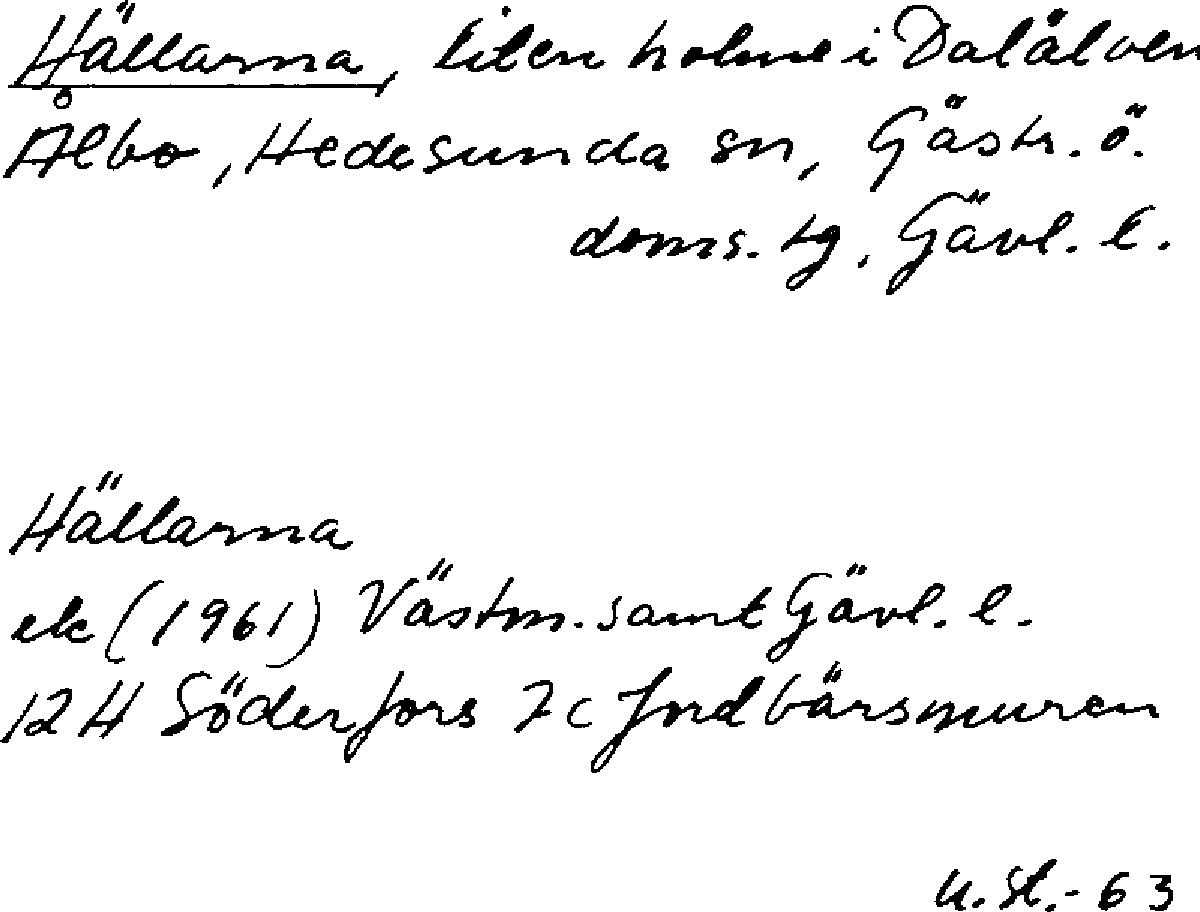 Hällarna, liten holme i Dalälven
Ålbo, Hedesunda sn, Gästr. ö.
doms. tg, Gävl. l.
Hällarna
ek (1961) Västm. samt Gävl. l.
12 H Söderfors 7c Jordbärsmuren
U. St.-63